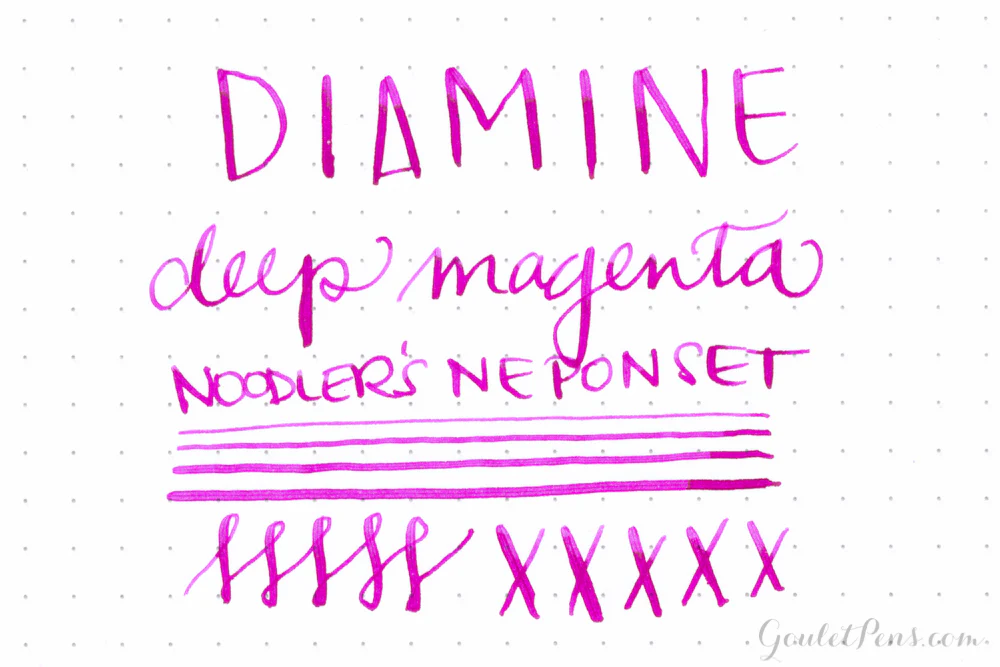 DIAMINE
deep magenta
NOODLER'S NEPONSET
XXXXX
GouletPens.com